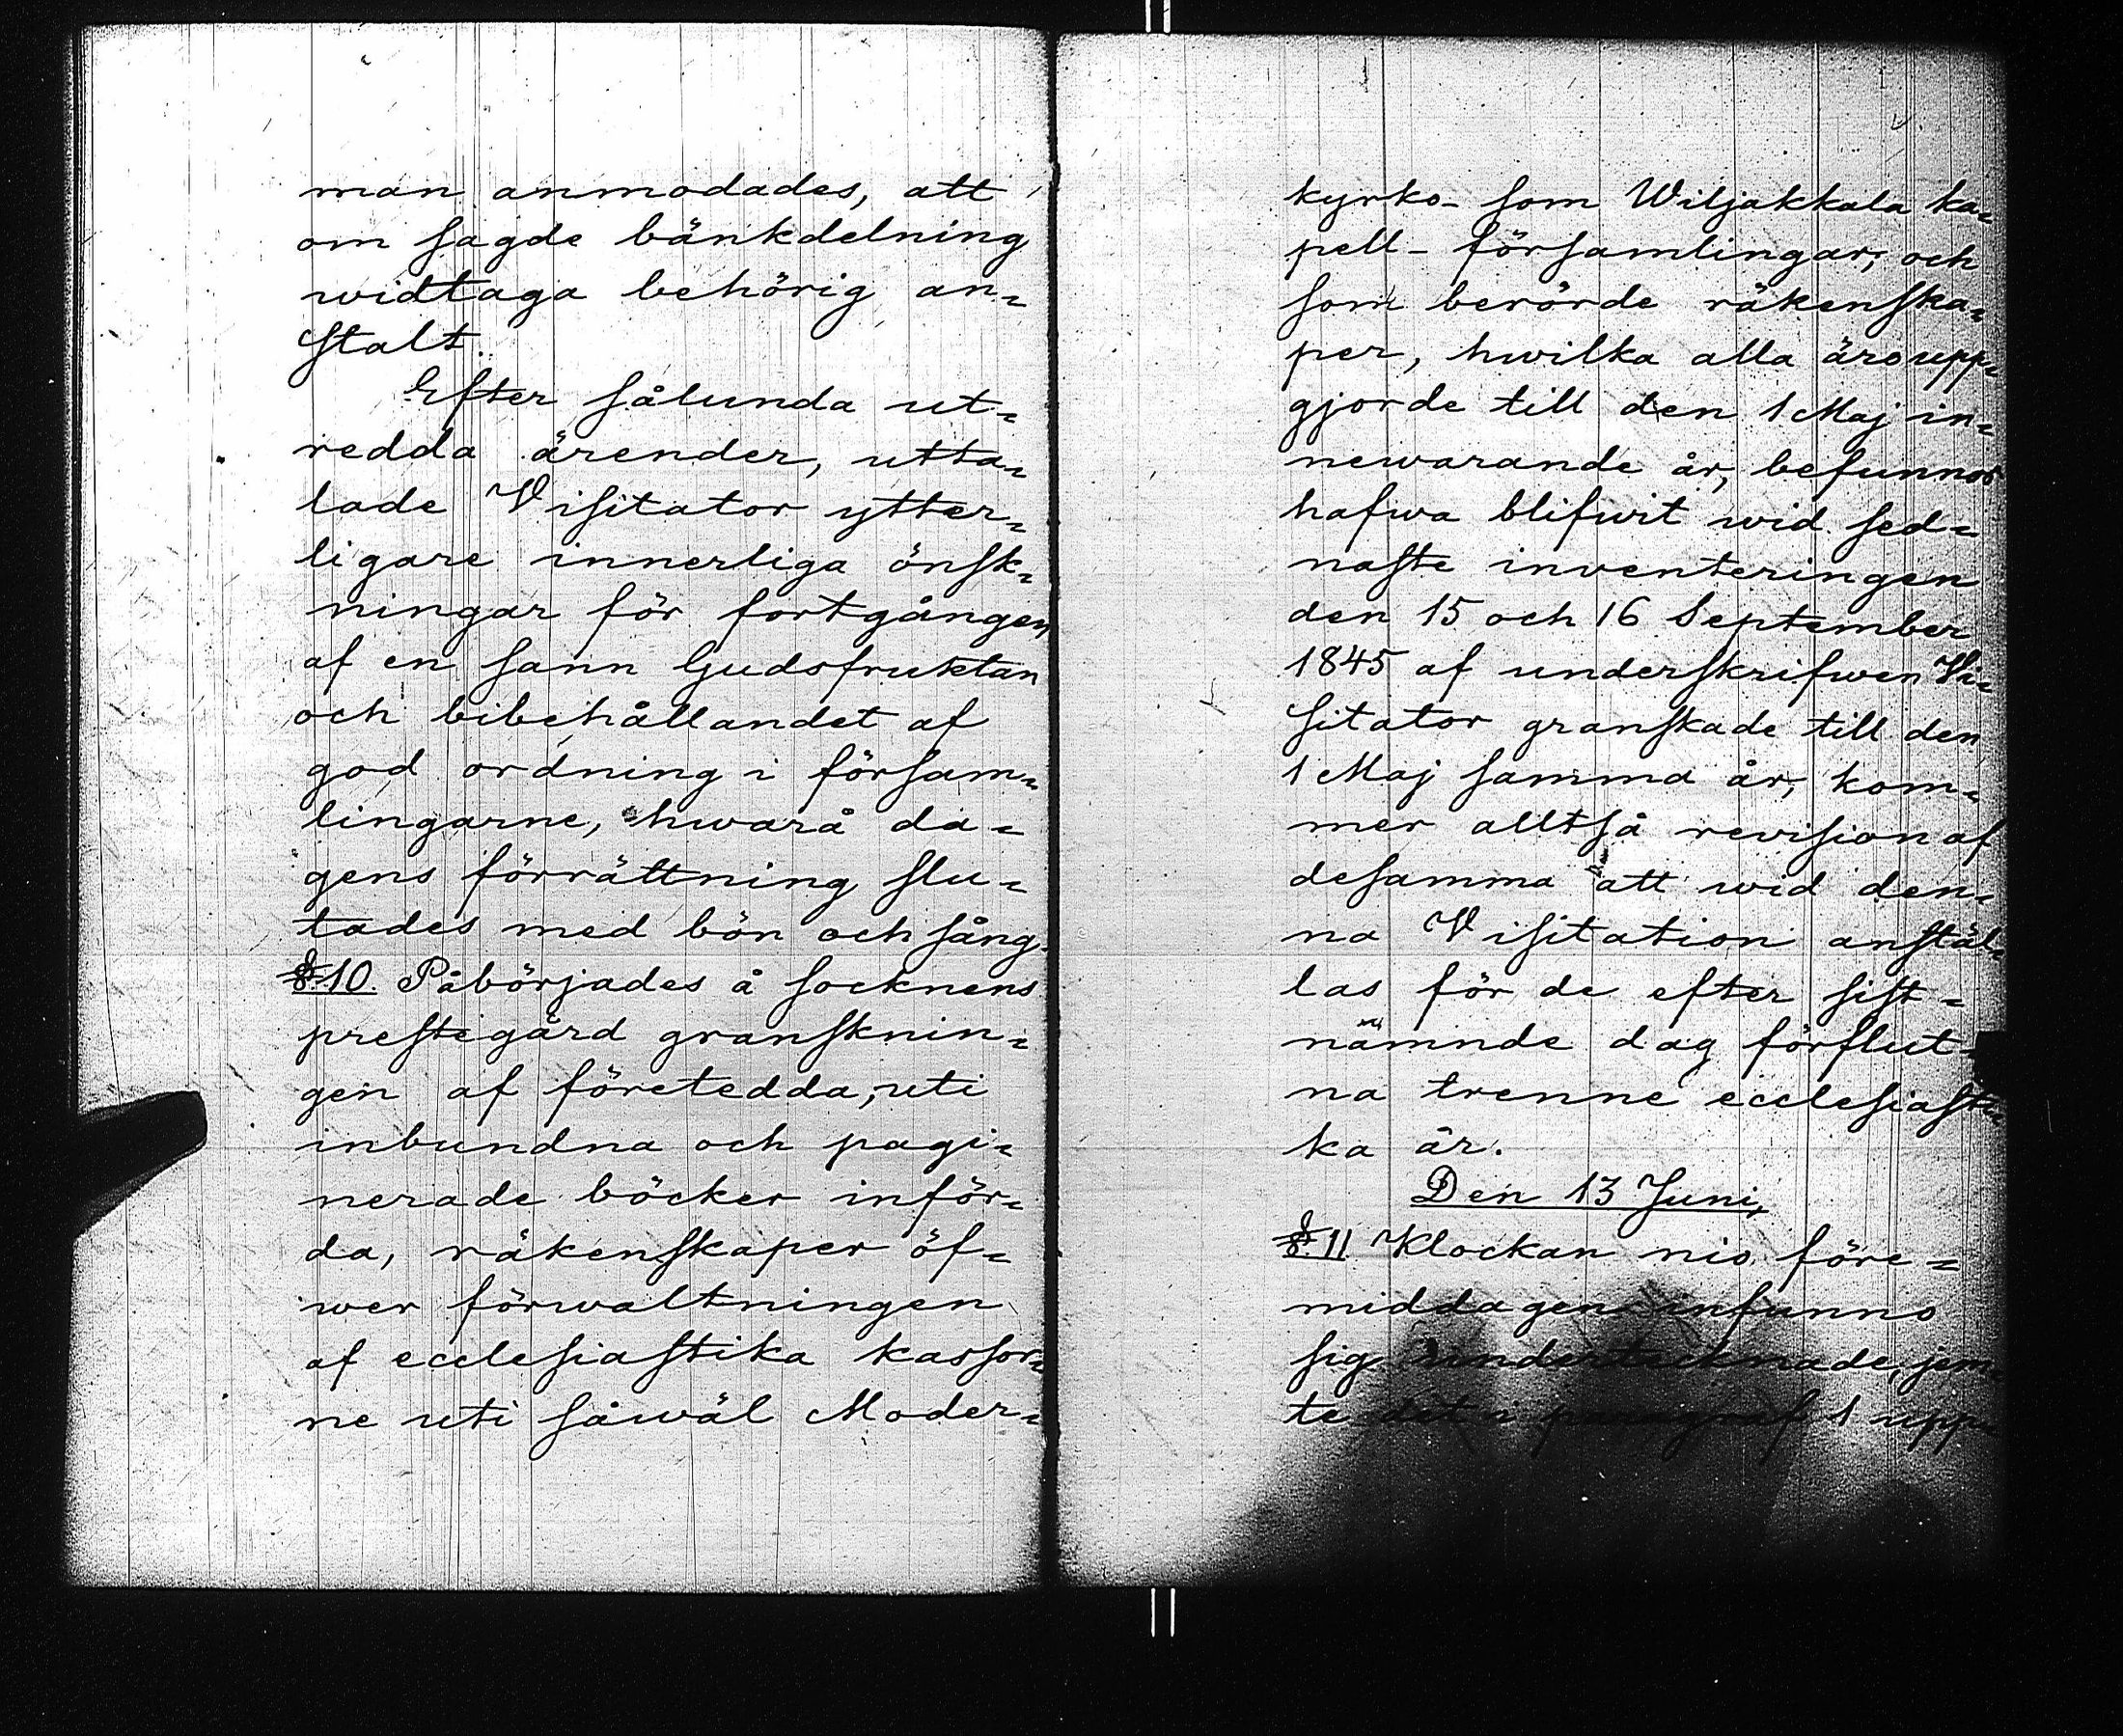 man anmodades, att
om sagde bänkdelning
widtaga behörig an=
stalt.
Efter sålunda ut=
redda ärender, utta=
lade Visitator ytter=
ligare innerliga önsk=
ningar för fortgången
af en sann Gudsfruktan
och bibehållandet af
god ordning i försam=
lingarne, hwarå da=
gens förrättning slu=
tades med bön och sång.
§ 10. Påbörjades å socknens
prestegård gransknin=
gen af företedda, uti
inbundna och pagi=
nerade böcker inför=
da, räkenskaper öf=
wer förwaltningen
af ecclesiastika kassor=
ne uti såwäl Moder=
kyrko- som Wiljakkala ka=
pell- församlingar, och
som berörde räkenska=
per, hwilka alla äro upp=
gjorde till den 1 Maj in=
newarande år, befunnos
hafwa blifwit wid sed=
naste inventeringen
den 15 och 16 September
1845 af underskrifwen Vi=
sitator granskade till den
1 Maj samma år, kom=
mer alltså revision af
desamma att wid den=
na Visitation anstäl=
las för de efter sist=
nämnde dag förflut=
na trenne ecclesiasti=
ka år.
Den 13 Juni,
§ 11 Klockan nio före=
middagen infunno
sig undertecknade, jem=
te det i paragraf 1 upp=